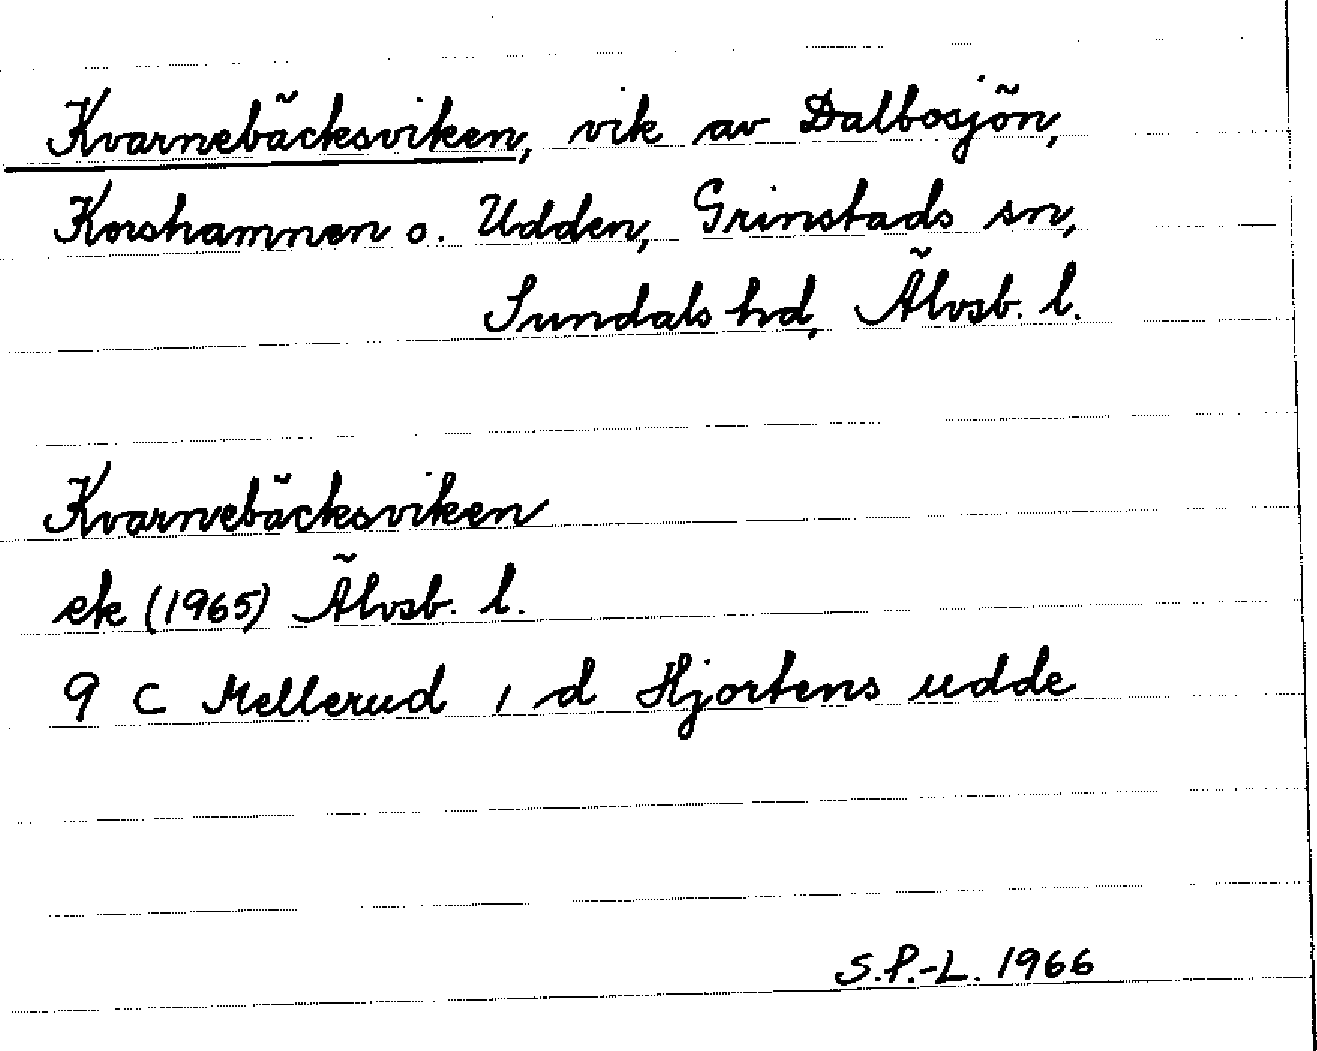 Kvarnebäcksviken, vik av Dalbosjön,
Korshamnen o. Udden, Grinstads sn,
Sundals hd, Älvsb. l.
Kvarnebäcksviken
ek (1965) Älvsb. l.
9 C Mellerud, d Hjortens udde
S.P.-L. 1966